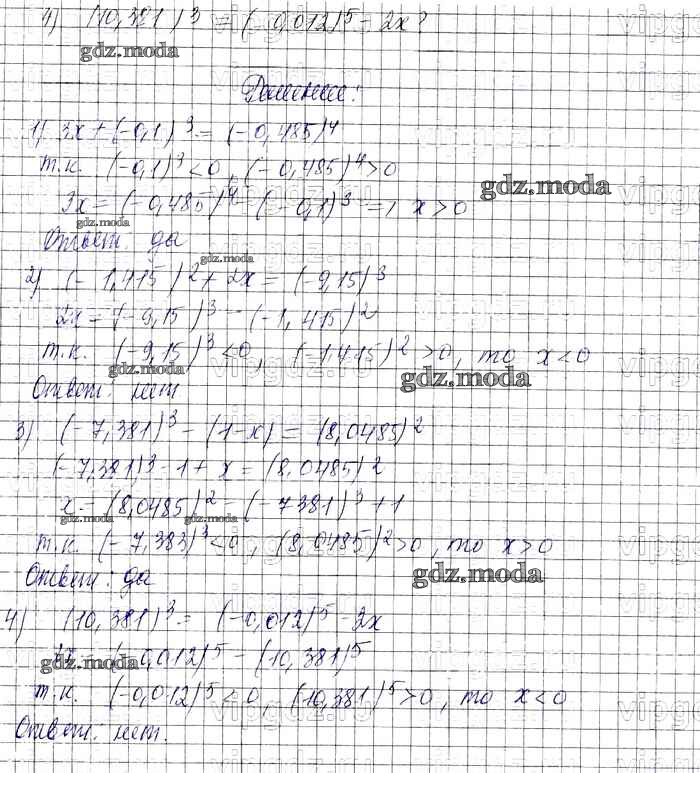 4) (10,381)³ = (-0,012)⁵ - 2x?
gdz.moda
Решение:
1) 3x + (-0,1)³ = (-0,485)⁴
т.к. (-0,1)³ < 0, (-0,485)⁴ > 0
gdz.moda
3x = (-0,485)⁴ - (-0,1)³ => x > 0
gdz.moda
Ответ: да
gdz.moda
2) (-1,415)² + 2x = (-9,15)³
2x = (-9,15)³ - (-1,415)²
т.к. (-9,15)³ < 0, (-1,415)² > 0, то x < 0
gdz.moda gdz.moda
Ответ: нет
3) (-7,381)³ - (1-x) = (8,0485)²
(-7,381)³ - 1 + x = (8,0485)²
x = (8,0485)² - (-7381)³ + 1
gdz.moda gdz.moda
т.к. (-7,383)³ < 0, (8,0485)² > 0, то x > 0
Ответ: да
gdz.moda
4) (10,381)³ = (-0,012)⁵ - 2x
(-0,012)⁵ - (10,381)⁵
gdz.moda
т.к. (-0,012)⁵ < 0, (10,381)⁵ > 0, то x < 0
Ответ: нет.